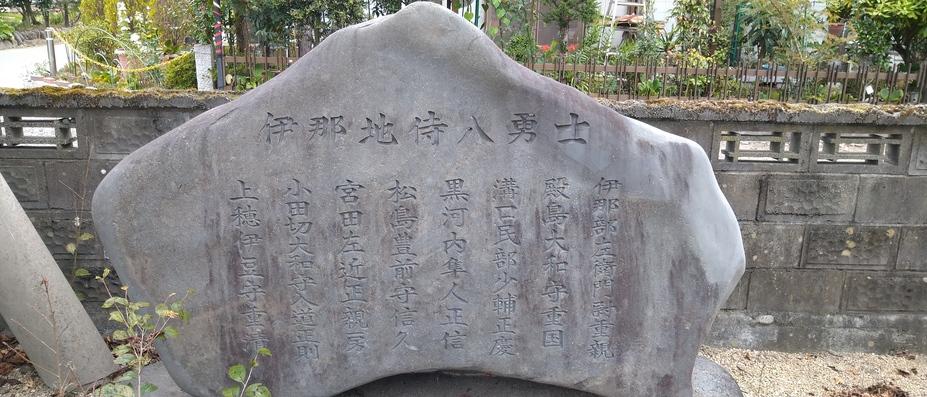 伊那地侍八勇士
伊那部左衛門尉重親
殿島大和守重国
溝口民部少輔正慶
黒河内隼人正信
松島豊前守信久
宮田左近正親房
小田切大和守入道正則
上穂伊豆守重清